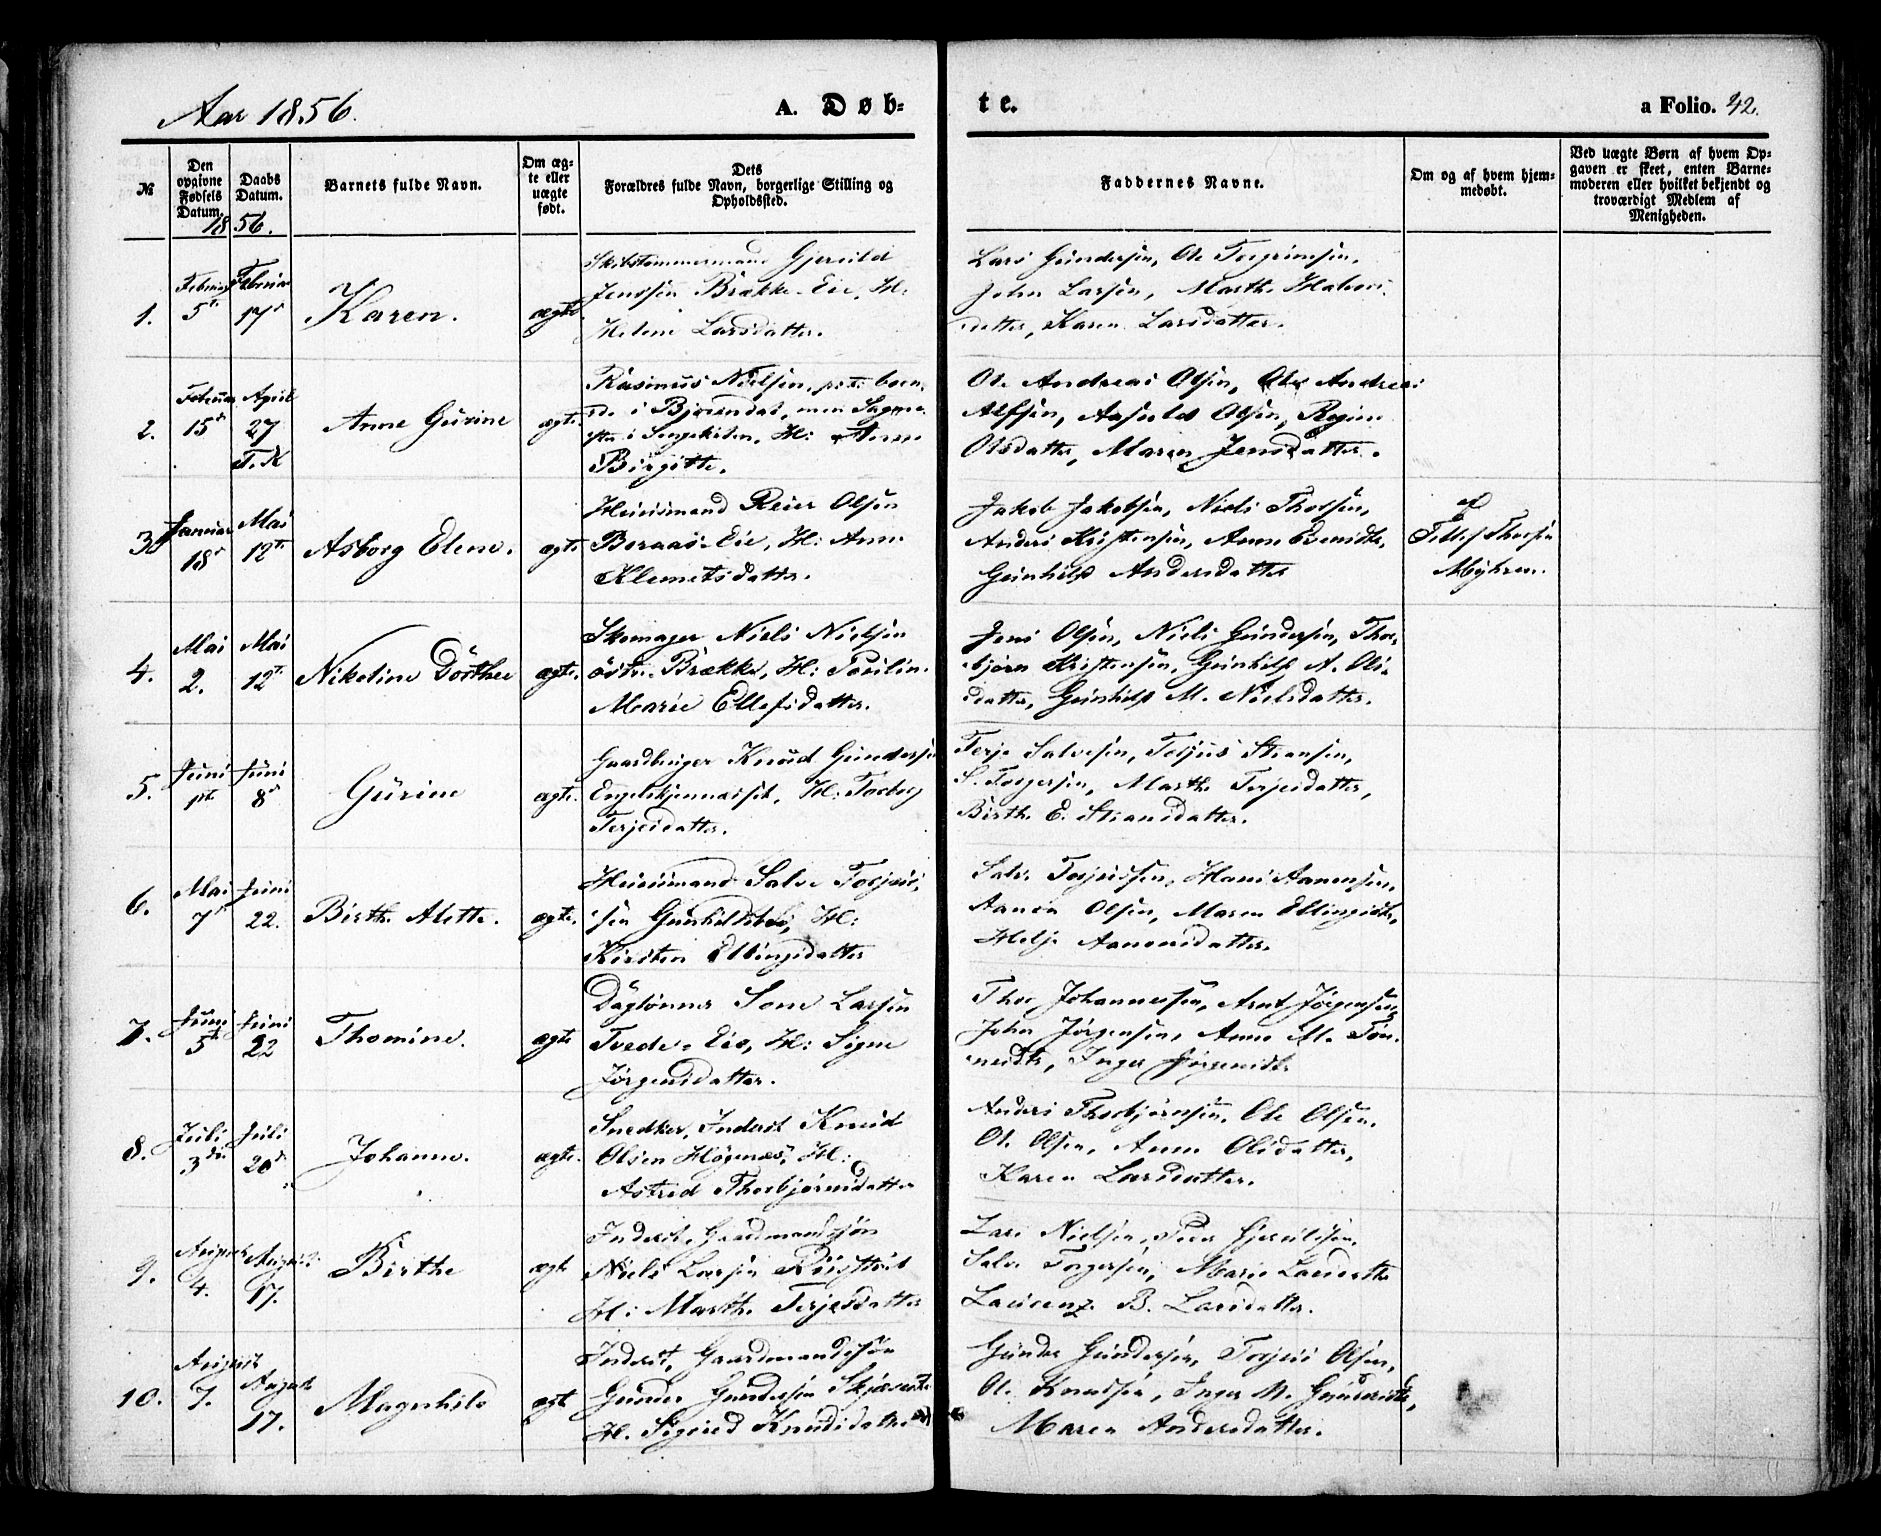 Aar 1856.
A. Døb-
te.
a Folio. 42.
№
Den
opgivne
Fødsels
Datum.
Daabs
Datum.
1856.
Barnets fulde Navn.
Om æg-
te eller
uægte
født.
Dets
Forældres fulde Navn, borgerlige Stilling og
Opholdssted.
Faddernes Navne.
Om og af hvem hjem-
medøbt.
Ved uægte Børn af hvem Op-
gaven er skeet, enten Barne-
moderen eller hvilket bekjendt og
troværdigt Medlem af
Menigheden.
1.
Februar
5te
Februar
17de
Karen.
ægte
Skibstømmermand Gjeruld
Jenssen Brække-Eie, H:
Helene Larsdatter.
Lars Gundersen, Ole Torgrimsen,
John Larsen, Marthe Halvors-
datter, Karen Larsdatter.
2.
Februar
15de
April
27
T.K
Anne Gurine
ægte.
Rasmus Nielsen, boen-
de i Bjorendal, men
H: Anne
Birgitte.
Ole Andreas Olsen, Ole Andreas
Alfsen, Aasuld Olsen,
Olsdatter, Maren Jensdatter.
3.
Januar
18de
Mai
12te
Asborg Elene.
ægte
Huusmand Reier Olsen
Boraas-Eie, H: Anne
Klemetsdatter.
Jakob Jakobsen, Niels Thorsen,
Anders Kristensen, Anne
Gunhild Andersdatter
af
Tellef Thorsen
Myhren.
4.
Mai
2.
Mai
12te
Nikoline Dorthee
ægte.
Skomager Niels Nielsen
østre Brække, H:
Marie Ellefsdatter.
Jens Olsen, Niels Gundersen, Thor-
bjørn Kristensen, Gunhild A. Ols-
datter, Gunhild M. Nielsdatter.
5.
Juni
1ste
Juni
8de
Gurine
ægte.
Gaardbruger Knud Gundersen
H: Torborg
Terjesdatter.
Terje Salvesen, Teljus Stiansen,
S. Torgersen, Marthe Terjesdatter,
Birthe E. Stiansdatter.
6.
Mai
7de
Juni
22.
Birthe Alette.
ægte.
Huusmand Salve Torjus-
sen Gunhildsbo, H:
Kirsten Ellingsdatter
Salve Torjussen, Hans Aanonsen,
Aanon Olsen, Maren Ellingsdtr,
Helje Aanonsdatter.
7.
Juni
5te
Juni
22
Thomine.
ægte
Daglønner Sone Larsen
Tvede-Eie, H: Signe
Jörgensdatter.
Thor Johannessen, Arnt Jörgensen,
John Jörgensen, Anne M. Tön-
nesdtr, Inger Jörgensdtr
8.
Juli
3die
Juli
20de
Johanne.
ægte.
Snedker, Inderst Knud
Olsen Högenæs, H:
Astrid Thorbjörnsdatter
Anders Thorbjörnsen, Ole Olsen,
Ole Olsen, Anne Olsdatter,
Karen Larsdatter.
9.
August
4.
August
17.
Birthe
ægte
Inderst, Gaardmandssön
Niels Larsen
H: Marthe Terjesdatter
Lars Nielsen, Peer Gjeruldsen,
Salve Torgersen, Marie
Laurenze B. Larsdatter.
10.
August
7.
August
17.
Magnhild
ægte
Inderst, Gaardmandssön
Gunder Gundersen
H. Sigrid Knudsdatter
Gunder Gundersen, Torjus Olsen,
Ole Knudsen, Inger M. Gundersdtr,
Maren Andersdatter.